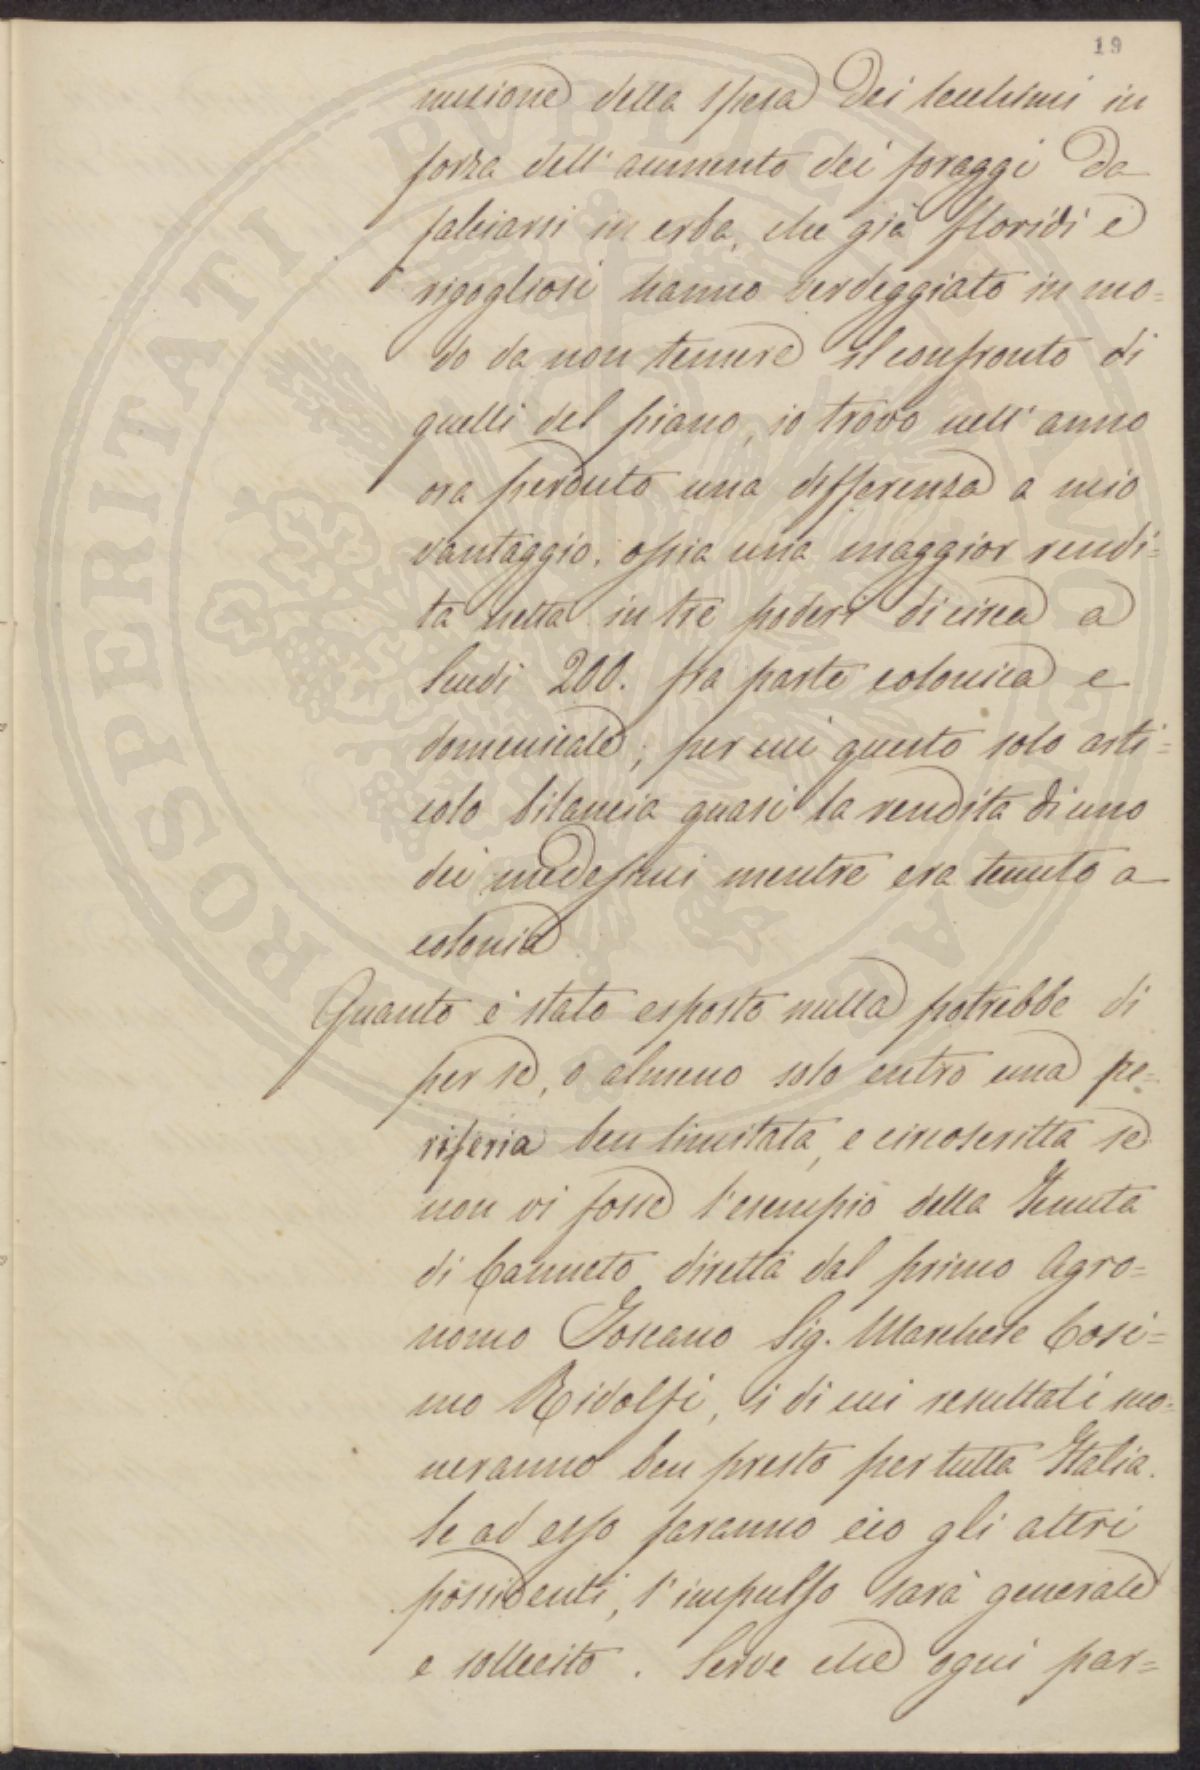 19
nuzione della spesa dei secchimi in
forza dell'aumento dei foraggi da
falciarsi in erba, che già floridi e
rigogliosi hanno verdeggiato in mo=
do da non temere il confronto di
quelli del piano, io trovo nell'anno
ora perduto una differenza a mio
vantaggio, ossia una maggior rendi=
ta netta in tre poderi di circa a
Scudi 200. fra parte colonica e
domenicale; per cui questo solo arti=
colo bilancia quasi la rendita di uno
dei medesimi mentre era tenuto a
colonia
Quanto è stato esposto nulla potrebbe di
per se, o almeno solo entro una pe=
riferia ben limitata, e circoscritta se
non vi fosse l'esempio della Tenuta
di Canneto diretta dal primo Agro=
nomo Toscano Sig. Marchese Cosi=
mo Ridolfi, i di cui resultati mo=
veranno ben presto per tutta Italia.
Se ad esso faranno eco gli altri
possidenti, l'impulso sarà generale
e sollecito. Serve che ogni par=
PROSPERITATI PUBLICAE AUGENDAE